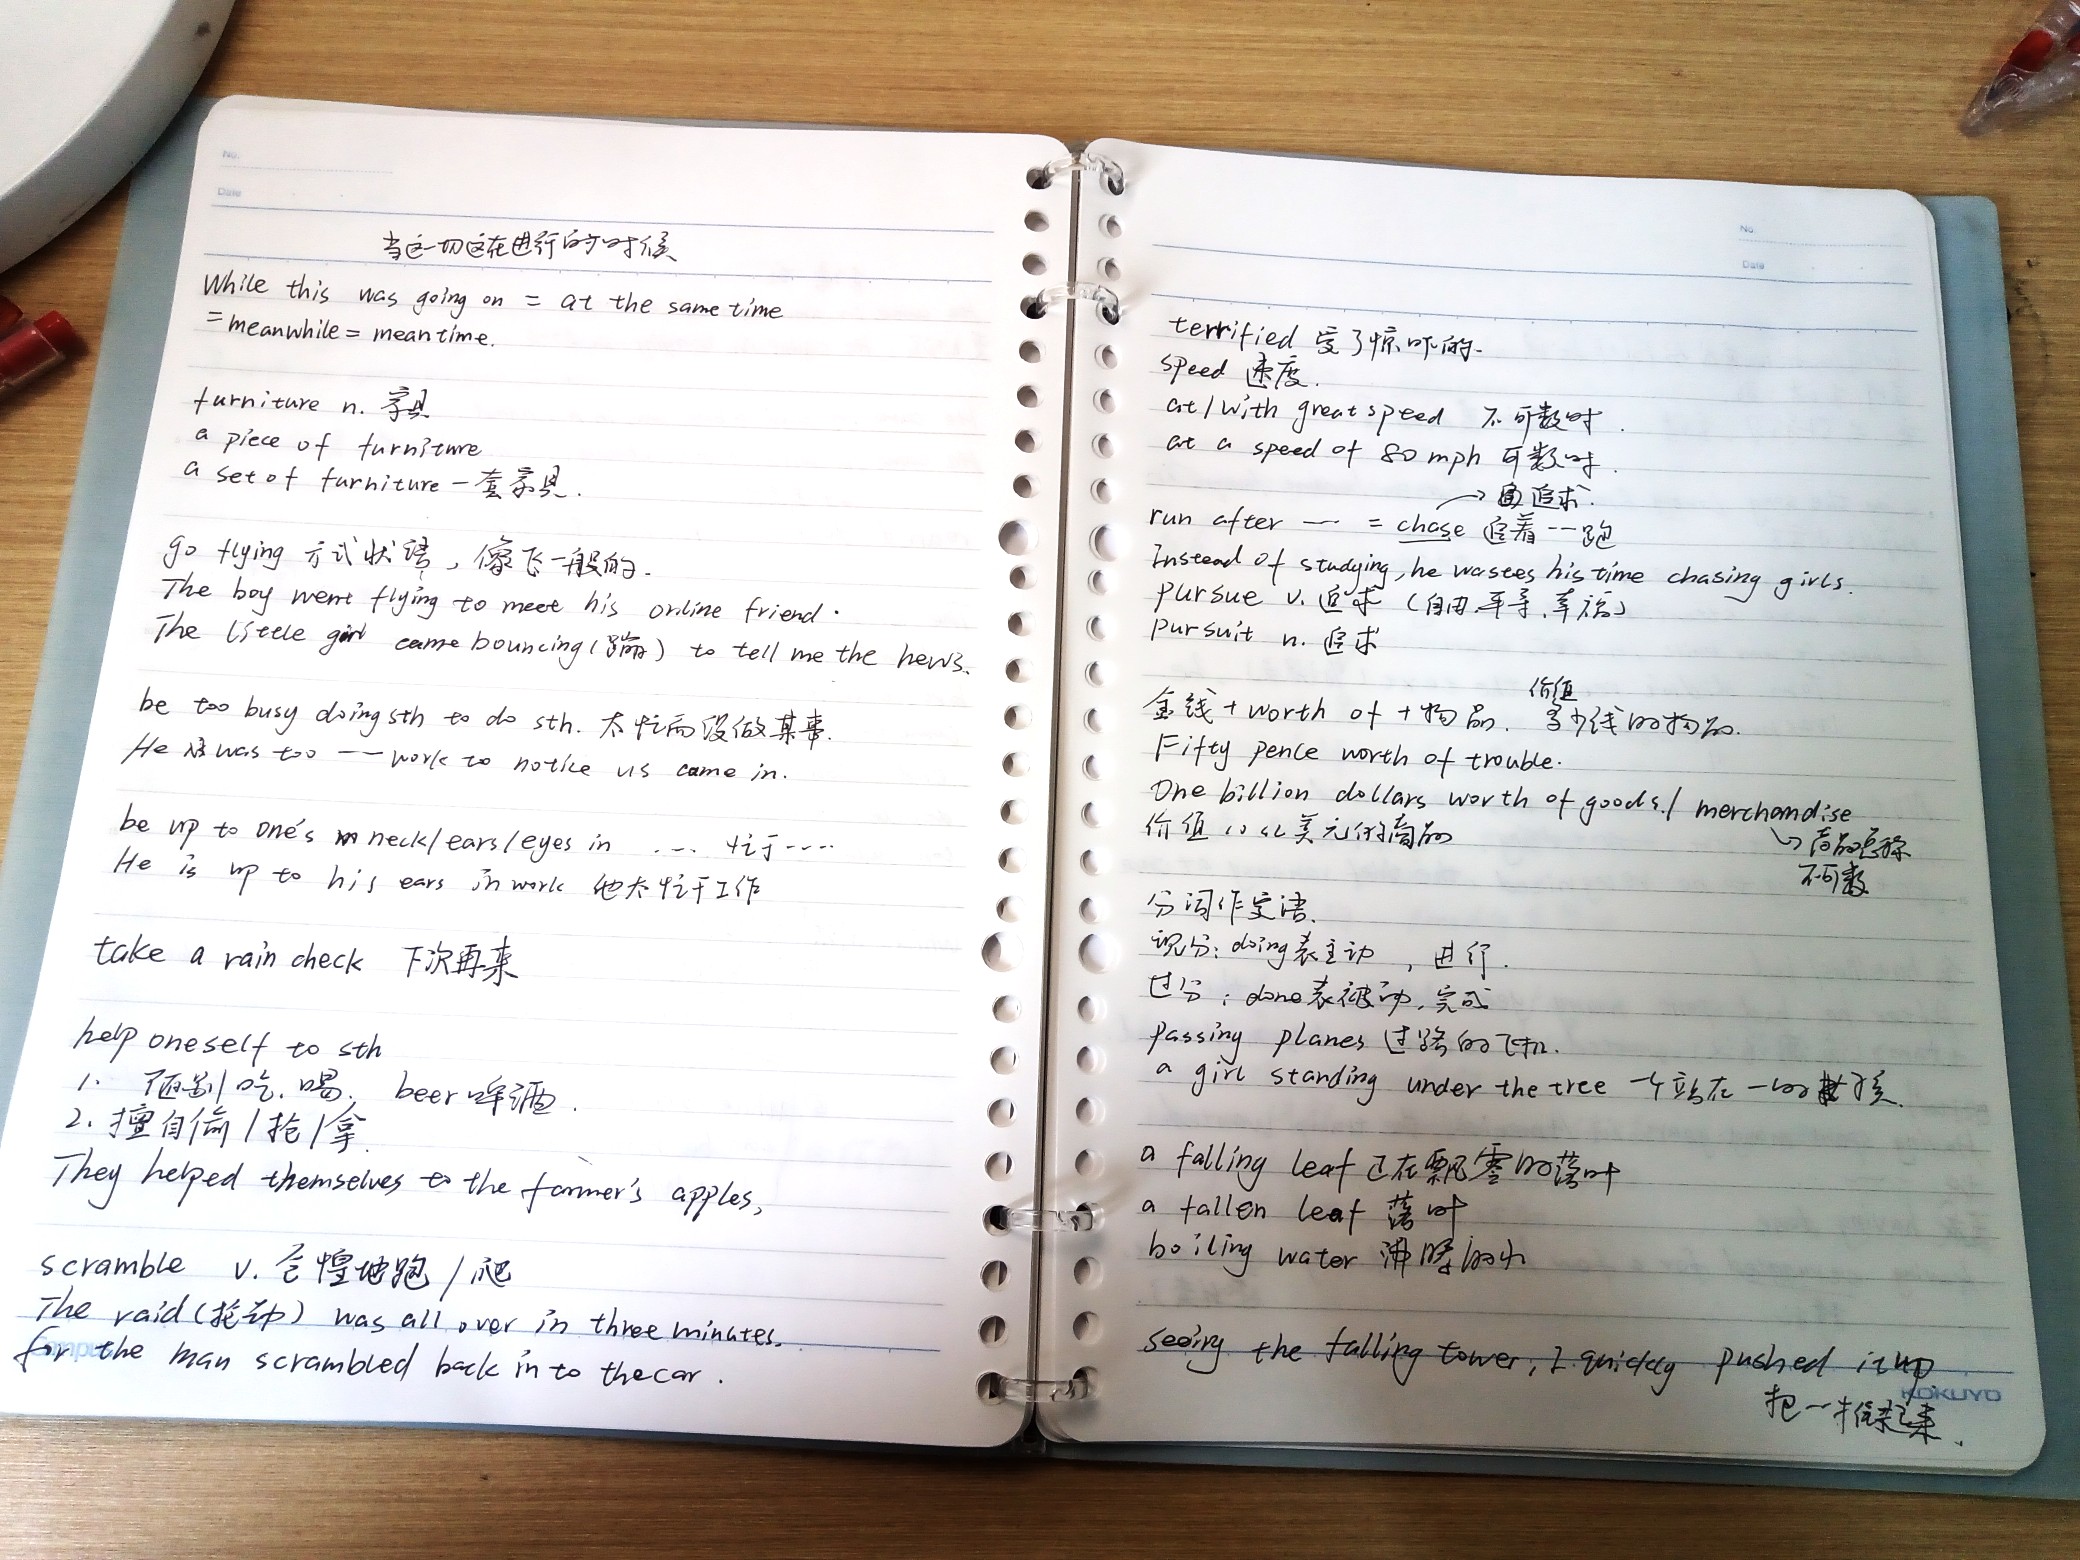 No.
Date
当这一切正在进行的时候
While this was going on = at the same time
= meanwhile = meantime.
furniture n. 家具
a piece of furniture
a set of furniture 一套家具.
go flying 方式状语, 像飞一般的.
The boy went flying to meet his online friend.
The little girl came bouncing (蹦) to tell me the news.
be too busy doing sth to do sth. 太忙而没做某事.
He was too 一一 work to notice us came in.
be up to one's neck/ears/eyes in .... 忙于....
He is up to his ears in work 他太忙于工作
take a rain check 下次再来
help oneself to sth
1. 随意吃.喝. beer 啤酒.
2. 擅自偷/抢/拿
They helped themselves to the farmer's apples,
scramble v. 仓惶地跑/爬
The raid (抢劫) was all over in three minutes.
for the man scrambled back in to the car.
Campus
No.
Date
terrified 受了惊吓的.
speed 速度.
at/with great speed 不可数时.
at a speed of 80 mph 可数时.
→ 追求.
run after 一一 = chase 追着一一跑
Instead of studying, he wastes his time chasing girls.
pursue v. 追求 (自由.平等.幸福)
pursuit n. 追求
价值
金钱 + worth of + 物品. 多少钱的物品.
Fifty pence worth of trouble.
One billion dollars worth of goods./ merchandise
价值10亿美元的商品
→ 商品总称
不可数
分词作定语.
现分: doing 表主动, 进行.
过分: done 表被动, 完成
passing planes 过路的飞机.
a girl standing under the tree 一个站在一的女孩.
a falling leaf 正在飘零的落叶
a fallen leaf 落叶
boiling water 沸腾的水
seeing the falling tower, I quickly pushed it up
KOKUYO
把一扶起来.